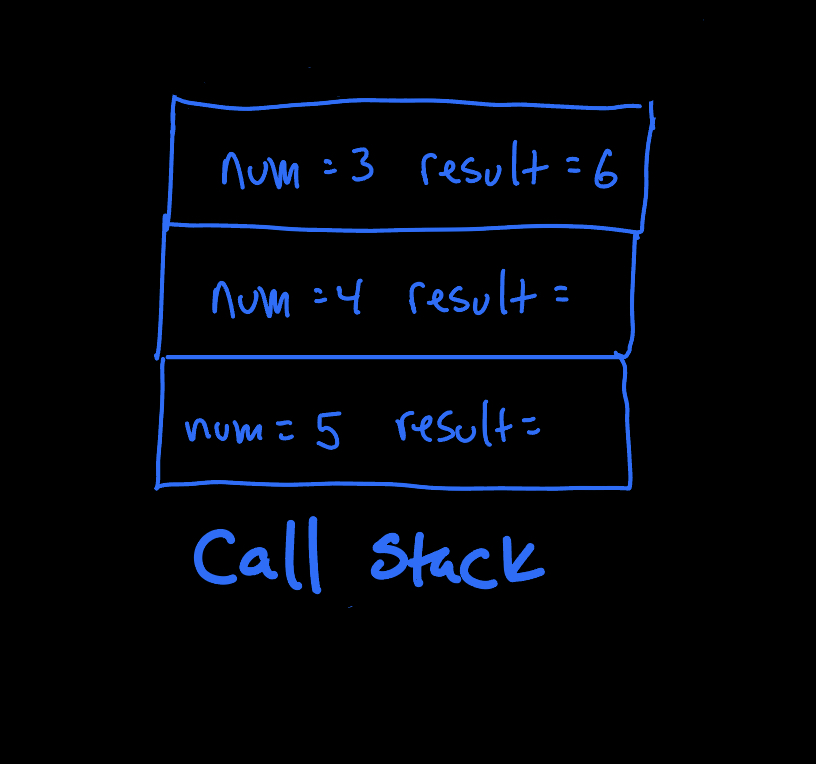 num = 3 result = 6
num = 4 result =
num = 5 result =
Call Stack